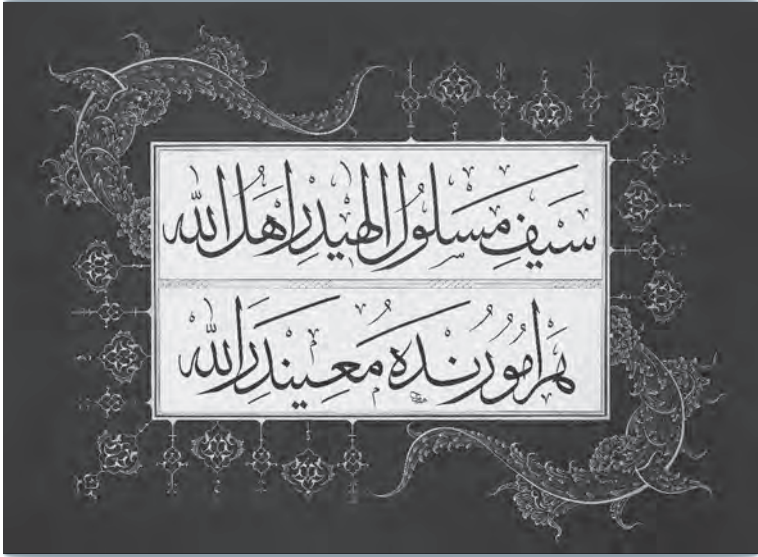 سَيفِ مَسلولِ الهيدِر اَهلُ الله
هَر اُمورُندَه مُعينيدَر الله